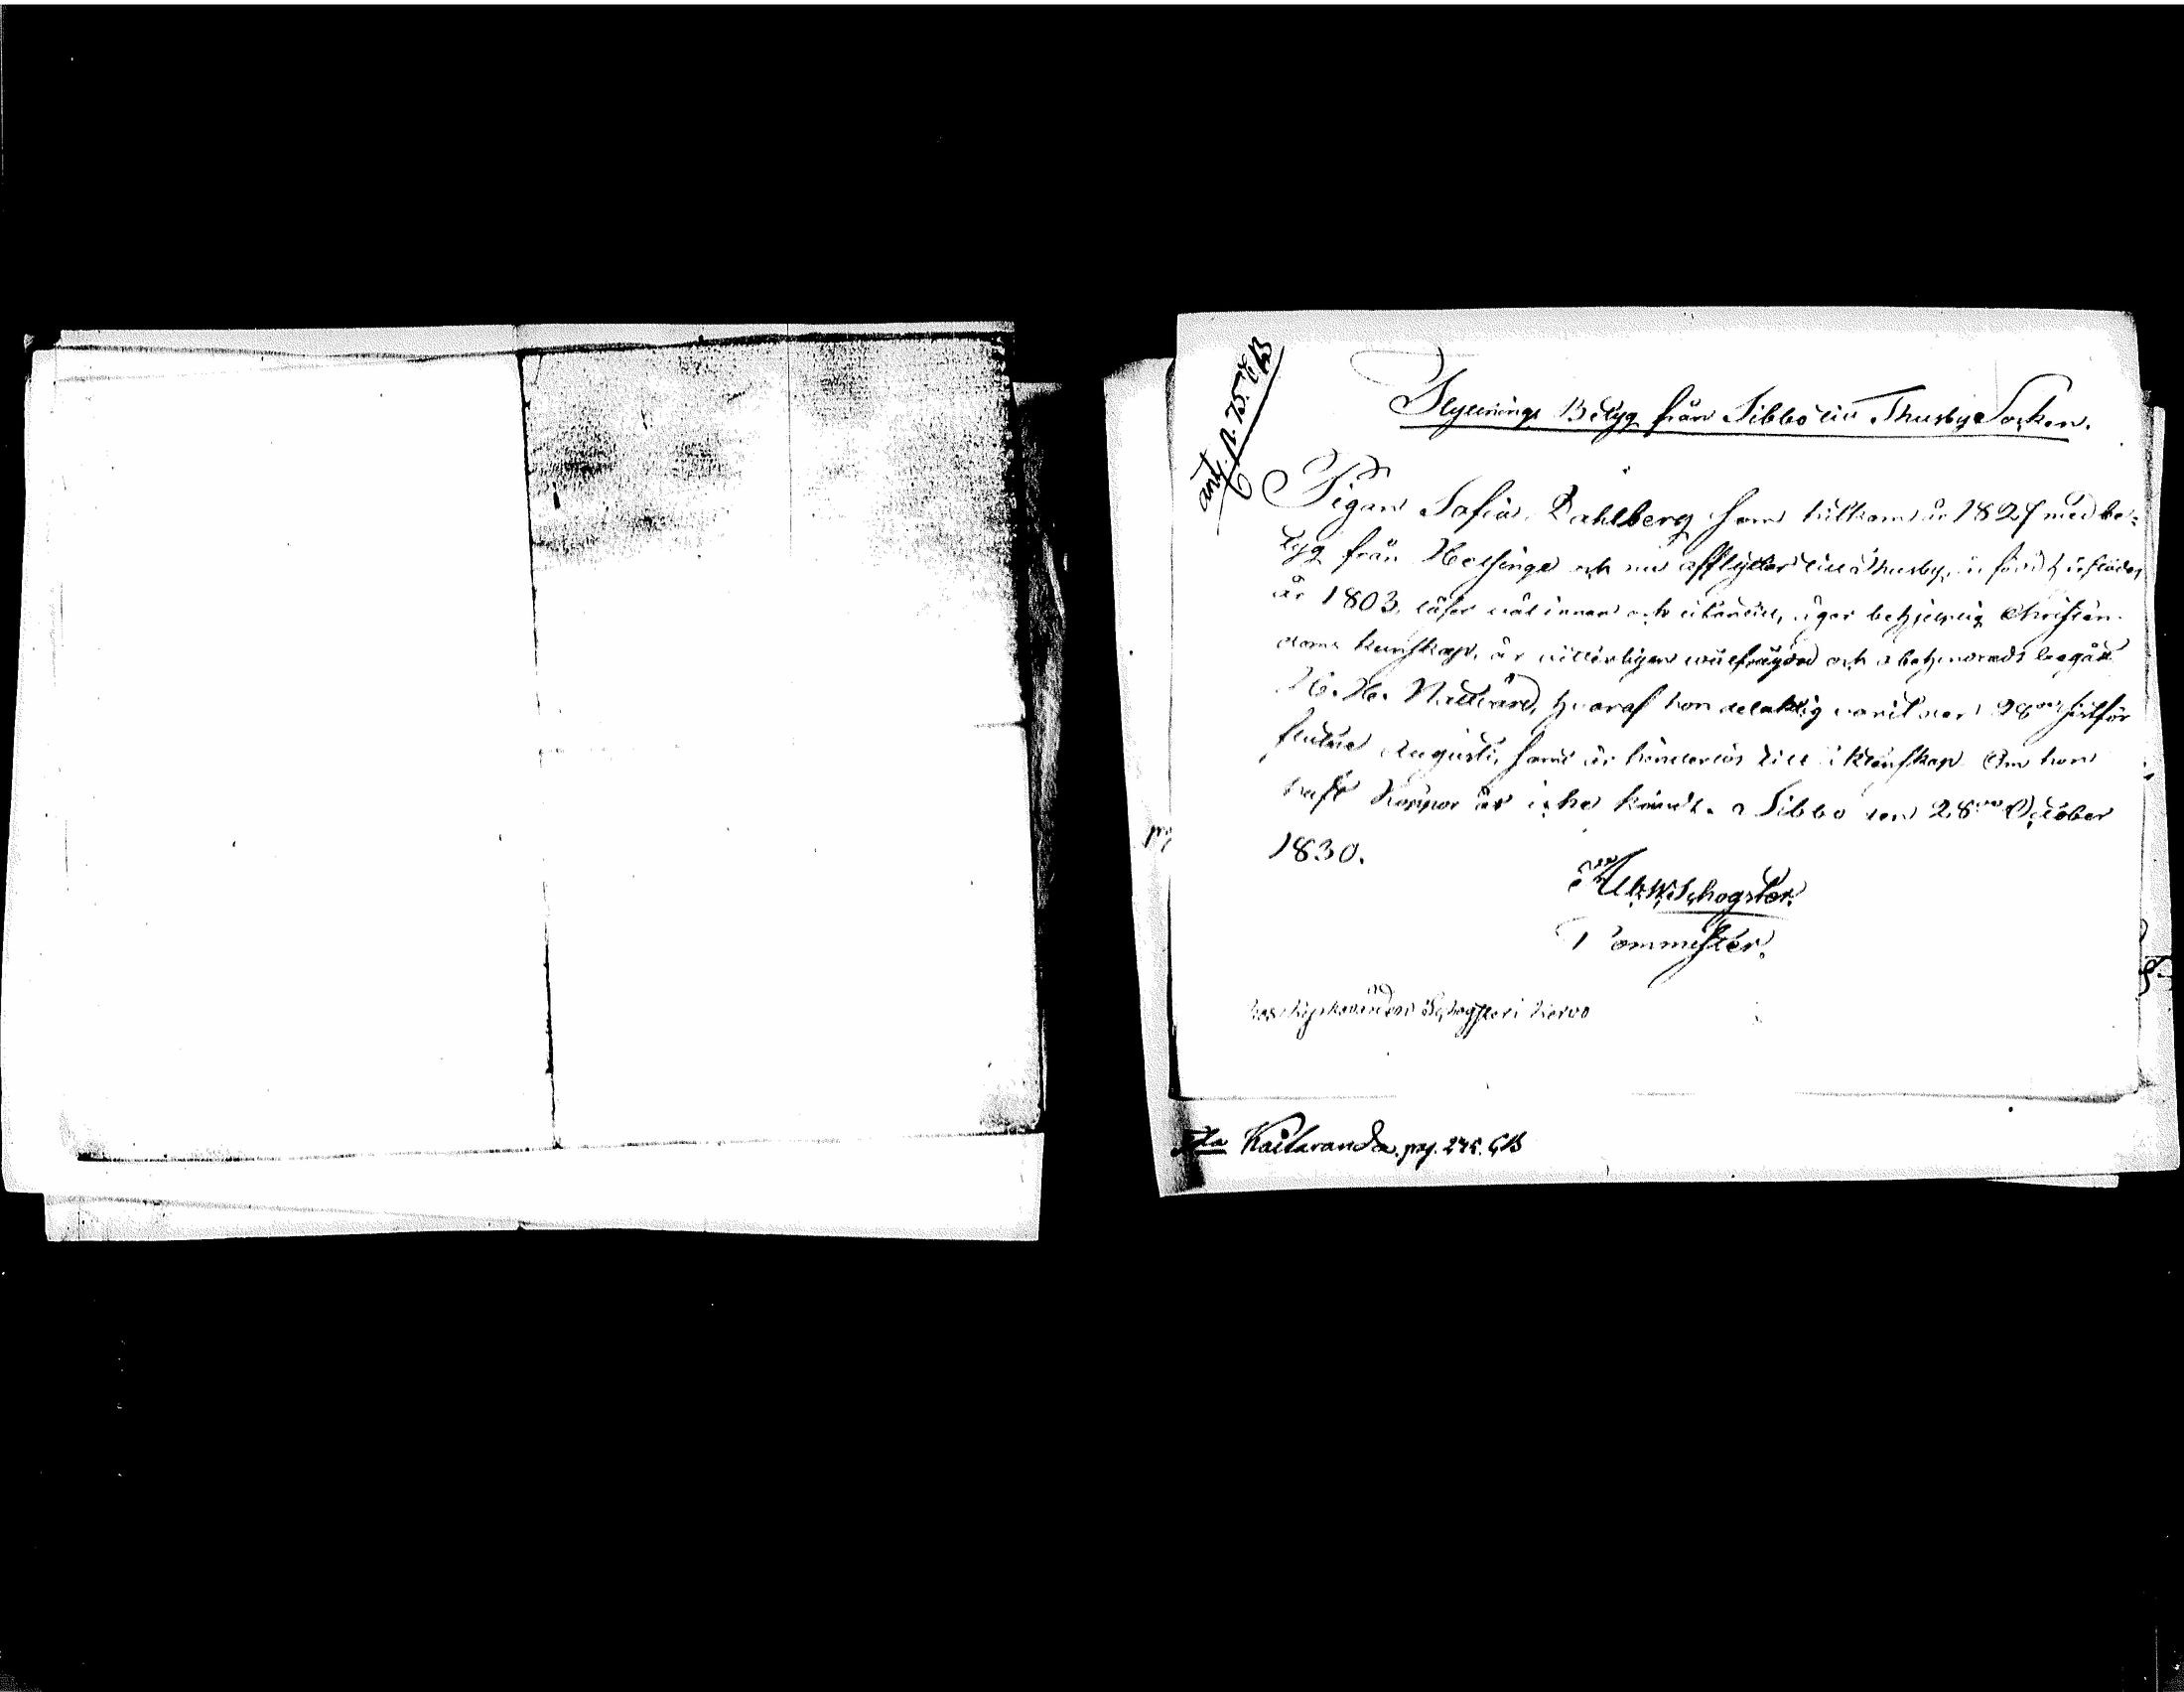 ant. p. 75. C.B
Flyttnings Betyg från Sibbo till Thusby Socken.
Pigan Sofia Dahlberg som tillkom år 1827 med be=
tyg från Helsinge och nu afflyttar till Thusby, är född
år 1803, läser väl innan och utantill, äger behjelplig Christen-
doms kunskap, är wälfrägdad och obehindrad begått
H. H. Nattvard, hvaraf hon delaktig varit den 28de sistför
flutne Augusti, samt är hinderlös till Ektenskap. Om hon
haft Koppor är icke kändt. Sibbo den 28de October
1830.
Schogster.
Commister.
hos Schogster i Kervo
Kaitaranda. pag. 275. C.B
pag